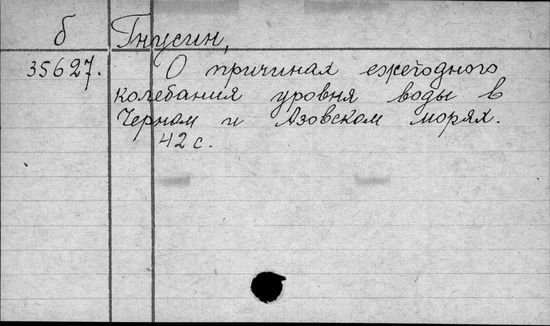 б Гнусин,
35627. О причинах ежегодного
колебания уровня воды в
Черном и Азовском морях.
42 с.